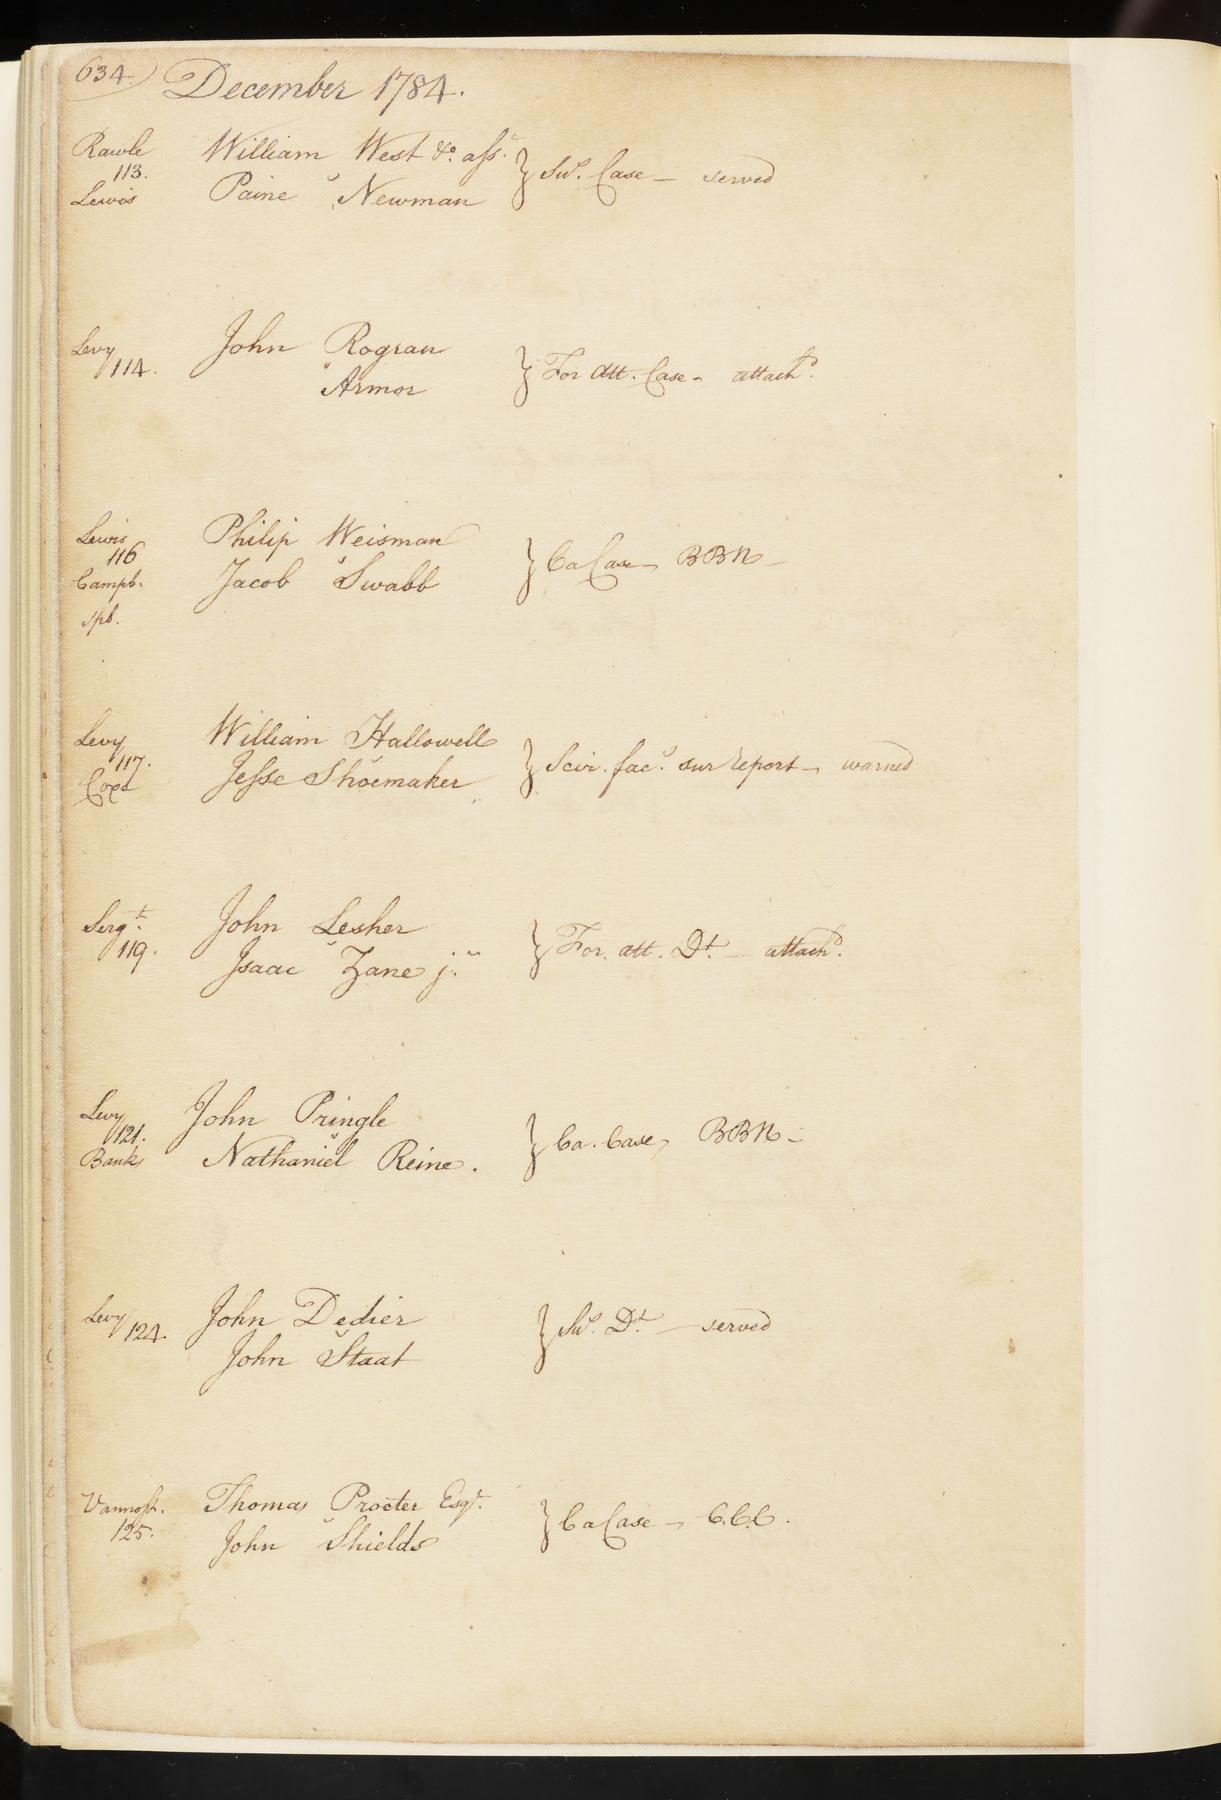 634.
December 1784.
Rawle
William West &c. ass.
113.
} Suṁ. Case — served
Lewis
Paine v Newman
Levy
John Rogran
114.
} For att. Case - attach'd.
v Armor
Lewis
Philip Weisman
116
} Ca Case - BBN -
Campb.
Jacob v Swabb
spb.
Levy
William Hallowell
117.
} Scir. fac.s sur report - warned
Coxe
Jesse v Shoemaker
Sergt.
John Lesher
119.
} For. att. Dt. - attachd.
Isaac v Zane jr.
Levy
John Pringle
121.
} Ca. Case, BBN -
Banks
Nathaniel v Reine.
Levy
John Dedier
124.
} Sus. Dt. - served
John v Staat
Vannost.
Thomas Procter Esqr.
125.
} Ca Case - C.C.C.
John v Shields